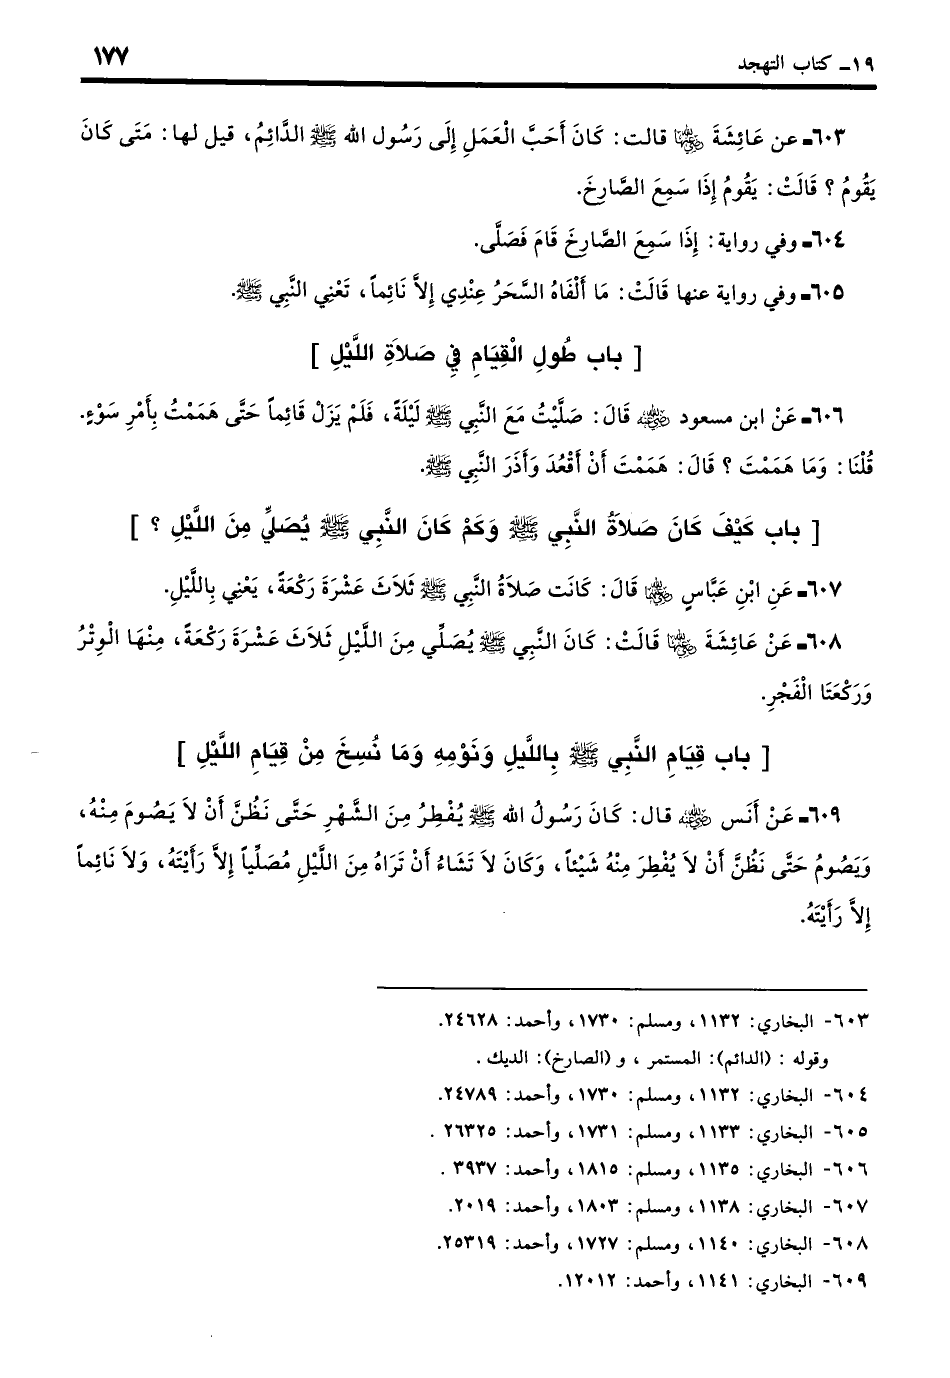 ١٩ـ كتاب التهجد
١٧٧
٦٠٣ـ عن عَائِشَةَ رضي الله عنها قالت: كَانَ أَحَبَّ الْعَمَلِ إِلَى رَسُول الله ﷺ الدَّائِمُ، قيل لها: مَتَى كَانَ
يَقُومُ ؟ قَالَتْ: يَقُومُ إِذَا سَمِعَ الصَّارِخَ.
٦٠٤ـ وفي رواية: إِذَا سَمِعَ الصَّارِخَ قَامَ فَصَلَّى.
٦٠٥ـ وفي رواية عنها قَالَتْ: مَا أَلْفَاهُ السَّحَرُ عِنْدِي إِلاَّ نَائِماً، تَعْنِي النَّبِي ﷺ.
[ باب طُولِ الْقِيَامِ فِي صَلاَةِ اللَّيْلِ ]
٦٠٦ـ عَنْ ابن مسعود رضي الله عنه قَالَ: صَلَّيْتُ مَعَ النَّبِي ﷺ لَيْلَةً، فَلَمْ يَزَلْ قَائِماً حَتَّى هَمَمْتُ بِأَمْرِ سَوْءٍ.
قُلْنَا: وَمَا هَمَمْتَ ؟ قَالَ: هَمَمْتَ أَنْ أَقْعُدَ وَأَذَرَ النَّبِي ﷺ.
[ باب كَيْفَ كَانَ صَلاَةُ النَّبِي ﷺ وَكَمْ كَانَ النَّبِي ﷺ يُصَلِّي مِنَ اللَّيْلِ ؟ ]
٦٠٧ـ عَنِ ابْنِ عَبَّاسٍ رضي الله عنهما قَالَ: كَانَت صَلاَةُ النَّبِي ﷺ ثَلاَثَ عَشْرَةَ رَكْعَةً، يَعْنِي بِاللَّيْلِ.
٦٠٨ـ عَنْ عَائِشَةَ رضي الله عنها قَالَتْ: كَانَ النَّبِي ﷺ يُصَلِّي مِنَ اللَّيْلِ ثَلاَثَ عَشْرَةَ رَكْعَةً، مِنْهَا الْوِتْرُ
وَرَكْعَتَا الْفَجْرِ.
[ باب قِيَامِ النَّبِي ﷺ بِاللَّيلِ وَنَوْمِهِ وَمَا نُسِخَ مِنْ قِيَامِ اللَّيْلِ ]
٦٠٩ـ عَنْ أَنَس رضي الله عنه قال: كَانَ رَسُولُ الله ﷺ يُفْطِرُ مِنَ الشَّهْرِ حَتَّى نَظُنَّ أَنْ لاَ يَصُومَ مِنْهُ،
وَيَصُومُ حَتَّى نَظُنَّ أَنْ لاَ يُفْطِرَ مِنْهُ شَيْئاً، وَكَانَ لاَ تَشَاءُ أَنْ تَرَاهُ مِنَ اللَّيْلِ مُصَلِّياً إِلاَّ رَأَيْتَهُ، وَلاَ نَائِماً
إِلاَّ رَأَيْتَهُ.
٦٠٣- البخاري: ١١٣٢، ومسلم: ١٧٣٠، وأحمد: ٢٤٦٢٨.
وقوله : (الدائم): المستمر ، و (الصارخ): الديك .
٦٠٤- البخاري: ١١٣٢، ومسلم: ١٧٣٠، وأحمد: ٢٤٧٨٩.
٦٠٥- البخاري: ١١٣٣، ومسلم: ١٧٣١، وأحمد: ٢٦٣٢٥ .
٦٠٦- البخاري: ١١٣٥، ومسلم: ١٨١٥، وأحمد: ٣٩٣٧ .
٦٠٧- البخاري: ١١٣٨، ومسلم: ١٨٠٣، وأحمد: ٢٠١٩.
٦٠٨- البخاري: ١١٤٠، ومسلم: ١٧٢٧، وأحمد: ٢٥٣١٩.
٦٠٩- البخاري: ١١٤١، وأحمد: ١٢٠١٢.